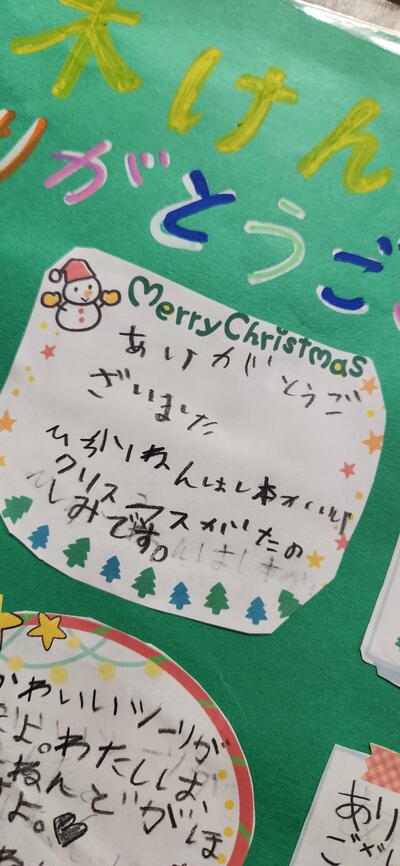 木けん
りがとうご
Merry Christmas
ありがとうご
ざいました
クリスマスがたの
しみです。
かわいいツーリが
だよ。わたしは、
ねんどがほ
よ。
あり
ござ